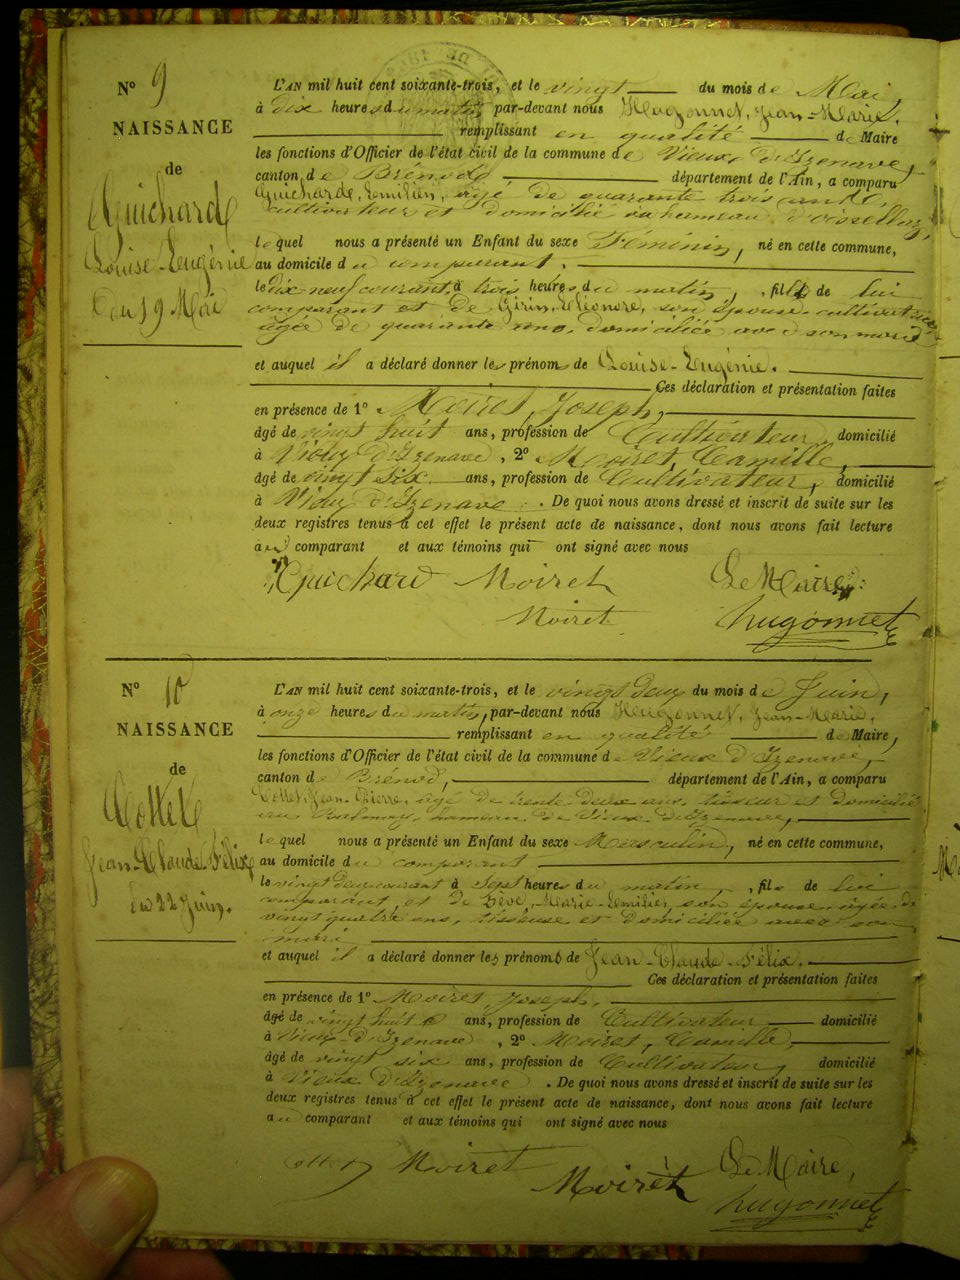 N° 9
NAISSANCE
de
Guichard
Louise-Eugénie
du 19 Mai
L'AN mil huit cent soixante-trois, et le vingt du mois de Mai
à dix heures du matin par-devant nous Hugonnet, Jean-Marie,
remplissant en qualité de Maire
les fonctions d'Officier de l'état civil de la commune de Vieux d'Izenave,
canton de Brénod, département de l'Ain, a comparu
Guichard, Emilien, âgé de quarante trois ans,
cultivateur et domicilié au hameau
lequel nous a présenté un Enfant du sexe Féminin, né en cette commune,
au domicile du comparant.
le dix neuf courant, à trois heures du matin, fille de lui
comparant et de Girin, Eléonore, son épouse, cultivatrice
âgée de quarante un ans, domiciliée avec son mari
et auquel il a déclaré donner les prénoms de Louise-Eugénie.
Ces déclaration et présentation faites
en présence de 1° Moiret, Joseph,
âgé de vingt huit ans, profession de Cultivateur, domicilié
à Vieux d'Izenave, 2° Moiret, Camille,
âgé de vingt six ans, profession de Cultivateur, domicilié
à Vieux d'Izenave. De quoi nous avons dressé et inscrit de suite sur les
deux registres tenus à cet effet le présent acte de naissance, dont nous avons fait lecture
au comparant et aux témoins qui ont signé avec nous
Guichard Moiret Le Maire
Moiret hugonnet
N° 10
NAISSANCE
de
Collet
Jean-Claude-Félix
du 22 Juin.
L'AN mil huit cent soixante-trois, et le vingt deux du mois de Juin,
à onze heures du matin, par-devant nous Hugonnet, Jean-Marie,
remplissant en qualité de Maire,
les fonctions d'Officier de l'état civil de la commune de Vieux d'Izenave,
canton de Brénod, département de l'Ain, a comparu
Collet, Jean-Pierre, âgé de trente deux ans, tisseur et domicilié
au hameau de Vieux d'Izenave,
lequel nous a présenté un Enfant du sexe Masculin, né en cette commune,
au domicile du comparant
le vingt deux courant à Sept heures du matin, fils de lui
comparant, et de Marie-Emilie, son épouse âgée de
vingt quatre ans, tisseuse et domiciliée avec son
mari
et auquel il a déclaré donner les prénoms de Jean-Claude-Félix.
Ces déclaration et présentation faites
en présence de 1° Moiret, Joseph,
âgé de vingt huit ans, profession de Cultivateur domicilié
à Vieux d'Izenave, 2° Moiret, Camille,
âgé de vingt six ans, profession de Cultivateur, domicilié
à Vieux d'Izenave. De quoi nous avons dressé et inscrit de suite sur les
deux registres tenus à cet effet le présent acte de naissance, dont nous avons fait lecture
au comparant et aux témoins qui ont signé avec nous
Moiret Moiret Le Maire,
hugonnet